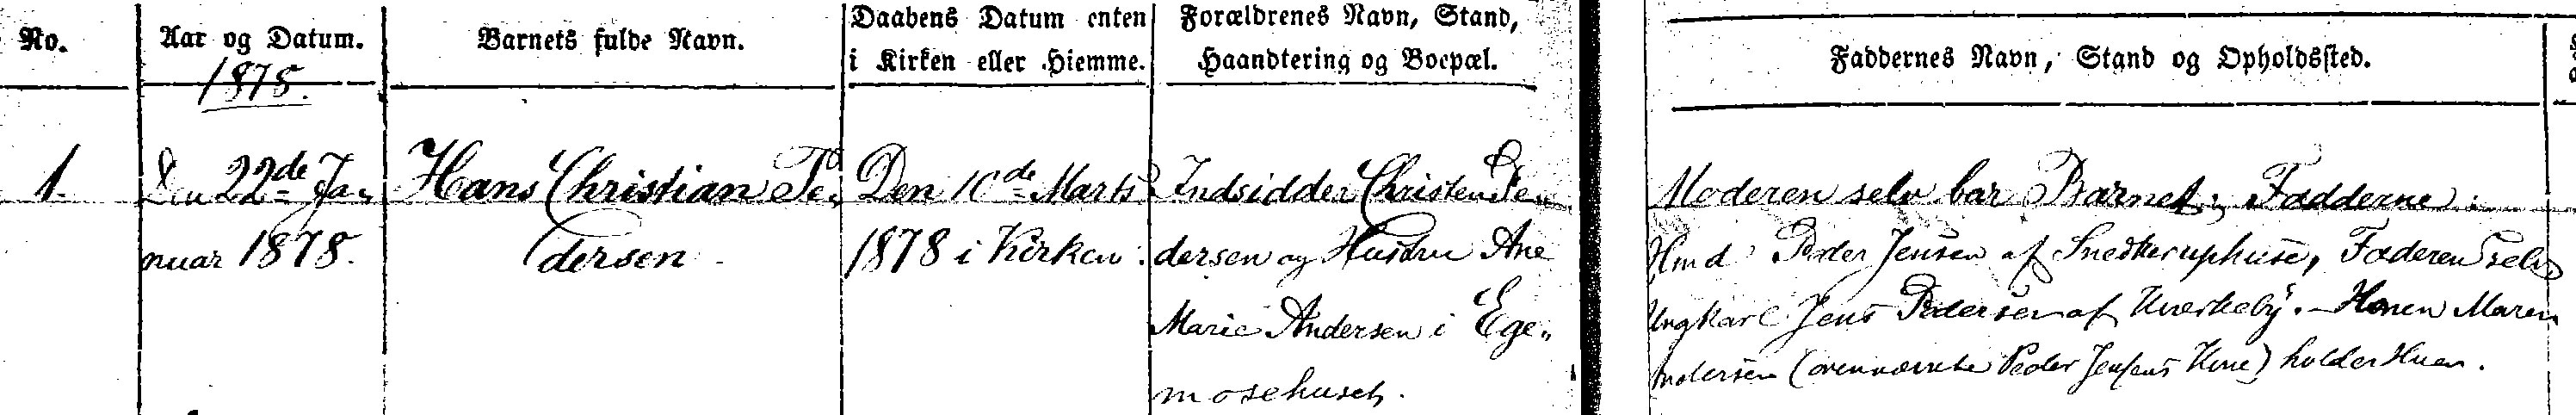 No.
Aar og Datum.
1878.
Barnets fulde Navn.
Daabens Datum enten
i Kirken eller Hiemme.
Forældrenes Navn, Stand,
Haandtering og Boepæl.
Faddernes Navn, Stand og Opholdssted.
1.
Den 22de Ja-
nuar 1878.
Hans Christian Pe-
dersen
Den 10de Marts
1878 i Kirken.
Indsidder Christen Pe-
dersen og Hustru Ane
Marie Andersen i Ege-
mosehuset.
Moderen selv bar Barnet; Fadderne:
Hmd Peder Jensen af Snedkeruphuse, Faderen selv
Ungkarl Jens Pedersen af Kværkeby. Konen Maren
Andersen (ovennævnte Peder Jensens Kone) holder Huen.